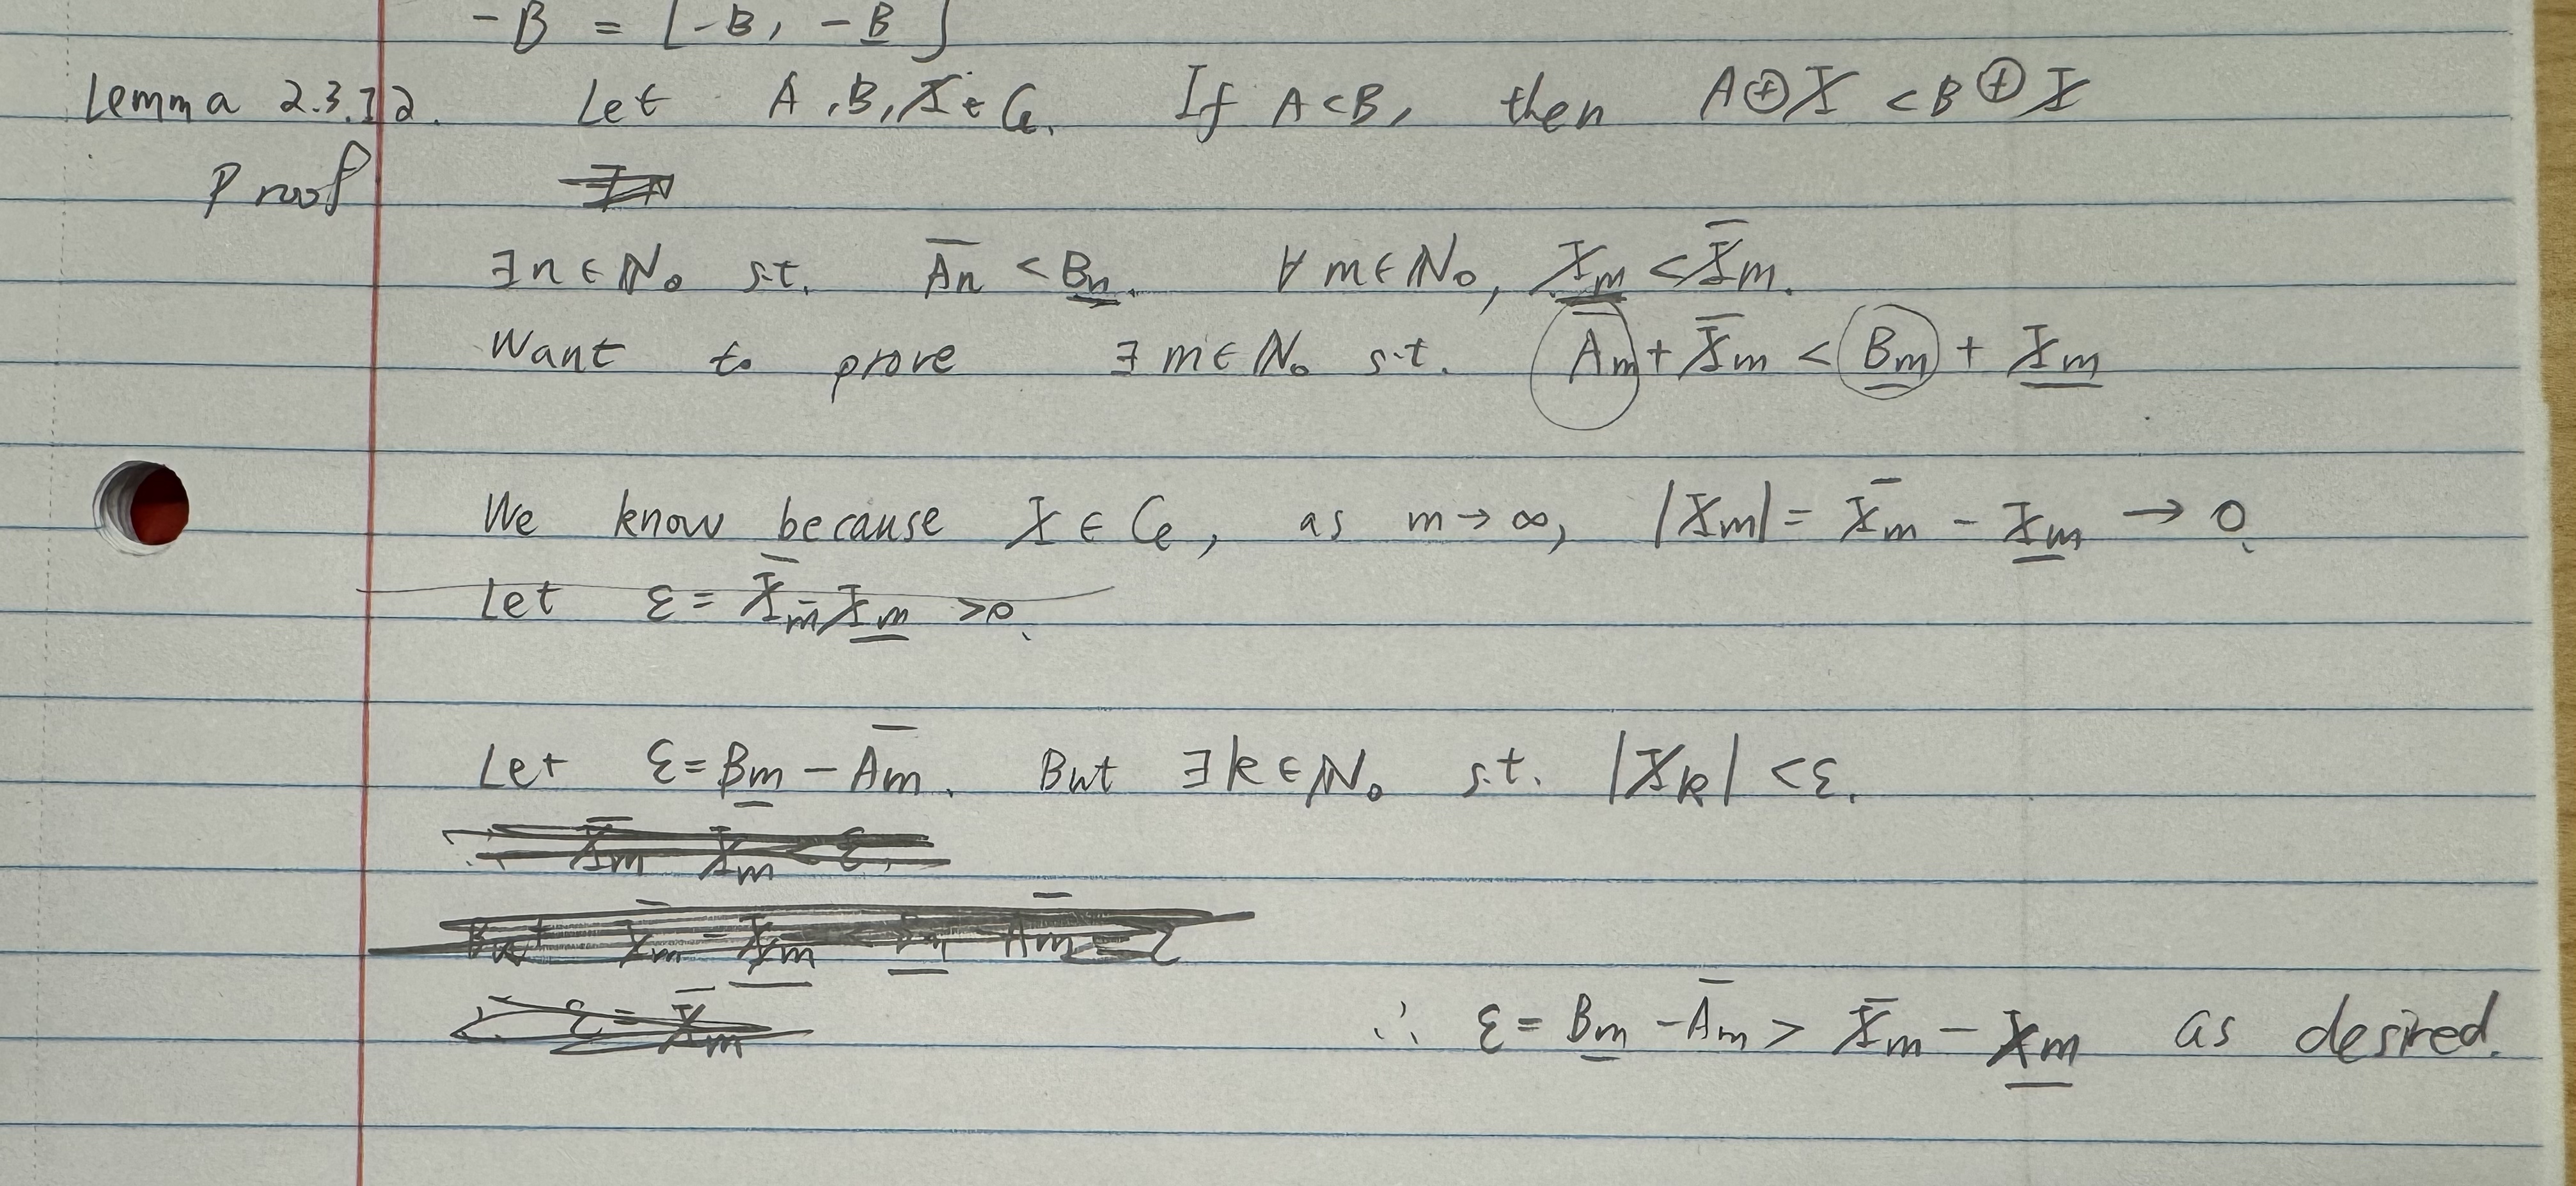 -B = [-B̅, -B̲]
Lemma 2.3.12. Let A, B, X ∈ C. If A < B, then A⊕X < B⊕X
Proof
∃n ∈ N₀ s.t. A̅n < B̲n. ∀ m ∈ N₀, X̲m < X̅m.
Want to prove ∃ m ∈ N₀ s.t. A̅m + X̅m < B̲m + X̲m
We know because X ∈ C, as m → ∞, |Xm| = X̅m - X̲m → 0.
Let ε = X̅m - X̲m > 0.
Let ε = B̲m - A̅m. But ∃ k ∈ N₀ s.t. |Xk| < ε.
∴ ε = B̲m - A̅m > X̅m - X̲m as desired.